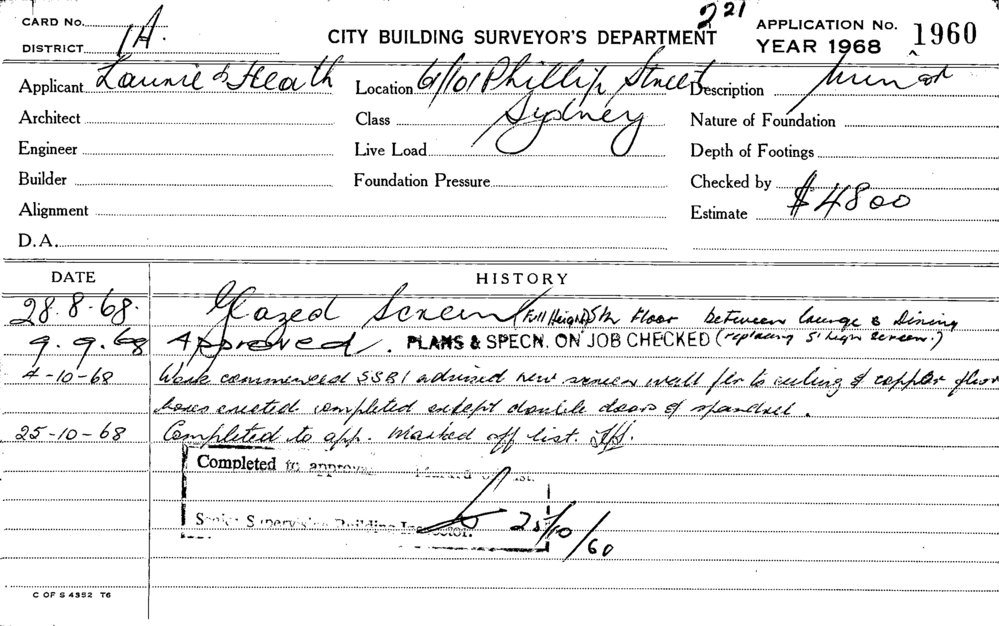 2 21
CARD No.
DISTRICT 1A.
CITY BUILDING SURVEYOR'S DEPARTMENT
APPLICATION No. 1960
YEAR 1968
Applicant Laurie & Heath
Location 61/101 Phillip Street
Sydney
Description
Architect
Class
Nature of Foundation
Engineer
Live Load
Depth of Footings
Builder
Foundation Pressure
Checked by
Alignment
Estimate $4800
D.A.
DATE
HISTORY
28.8.68. Glazed Screen (Full Height) 5th Floor between lounge & dining
9.9.68 Approved. PLANS & SPECN. ON JOB CHECKED (replacing 5' high screen.)
4-10-68 Work commenced SSBI advised new screen wall flr to ceiling & copper flower
boxes erected completed except double doors & spandrel.
25-10-68 Completed to app. Marked off list.
Completed to approval
Senior Supervising Building Inspector.
25/10/60
C OF S 4352 T6